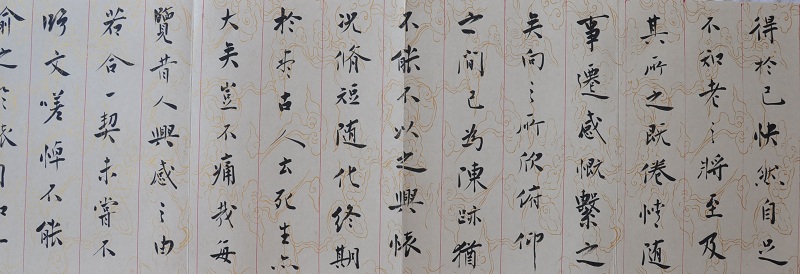 得於己快然自足
不知老之將至及
其所之既倦情随
事遷感慨繫之
矣向之所欣俯仰
之間已為陳跡猶
不能不以之興懷
況脩短随化終期
於盡古人云死生亦
大矣豈不痛哉每
覽昔人興感之由
若合一契未嘗不
臨文嗟悼不能
喻之於懷固知一